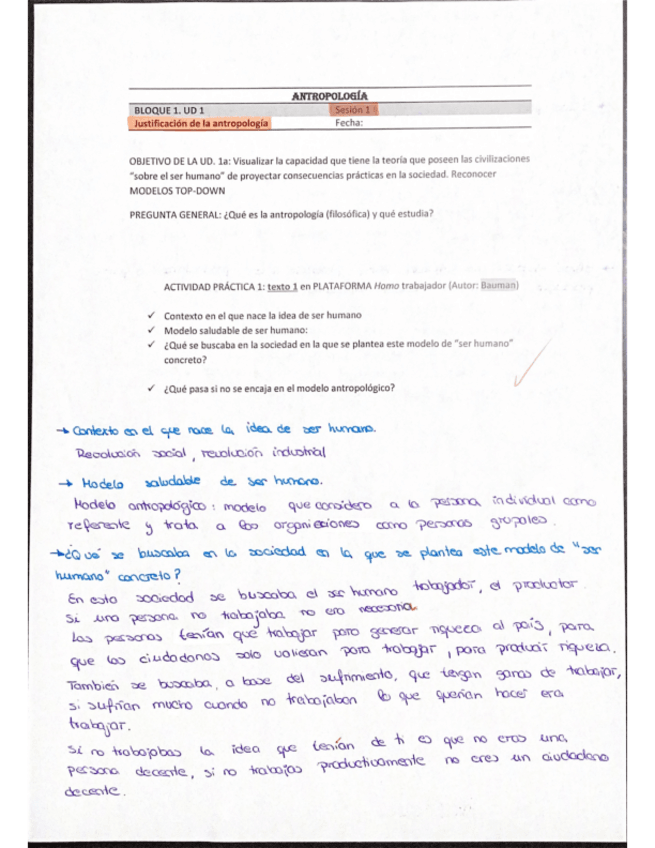 ANTROPOLOGÍA
BLOQUE 1. UD 1 Sesión 1
Justificación de la antropología Fecha:
OBJETIVO DE LA UD. 1a: Visualizar la capacidad que tiene la teoría que poseen las civilizaciones
"sobre el ser humano" de proyectar consecuencias prácticas en la sociedad. Reconocer
MODELOS TOP-DOWN
PREGUNTA GENERAL: ¿Qué es la antropología (filosófica) y qué estudia?
ACTIVIDAD PRÁCTICA 1: texto 1 en PLATAFORMA Homo trabajador (Autor: Bauman)
✓ Contexto en el que nace la idea de ser humano
✓ Modelo saludable de ser humano:
✓ ¿Qué se buscaba en la sociedad en la que se plantea este modelo de "ser humano"
concreto?
✓ ¿Qué pasa si no se encaja en el modelo antropológico?
→ Contexto en el que nace la idea de ser humano.
Revolución social, revolución industrial
→ Modelo saludable de ser humano.
Modelo antropológico: modelo que considera a la persona individual como
referente y trata a las organizaciones como personas grupales.
→ ¿Qué se buscaba en la sociedad en la que se plantea este modelo de "ser
humano" concreto?
En esta sociedad se buscaba el ser humano trabajador, el productor.
Si una persona no trabajaba no era necesaria.
Las personas tenían que trabajar para generar riqueza al país, para
que los ciudadanos solo valiesan para trabajar, para producir riqueza.
También se buscaba, a base del sufrimiento, que tengan ganas de trabajar,
si sufrían mucho cuando no trabajaban lo que querían hacer era
trabajar.
Si no trabajabas la idea que tenían de ti es que no eras una
persona decente, si no trabajas productivamente no eres un ciudadano
decente.